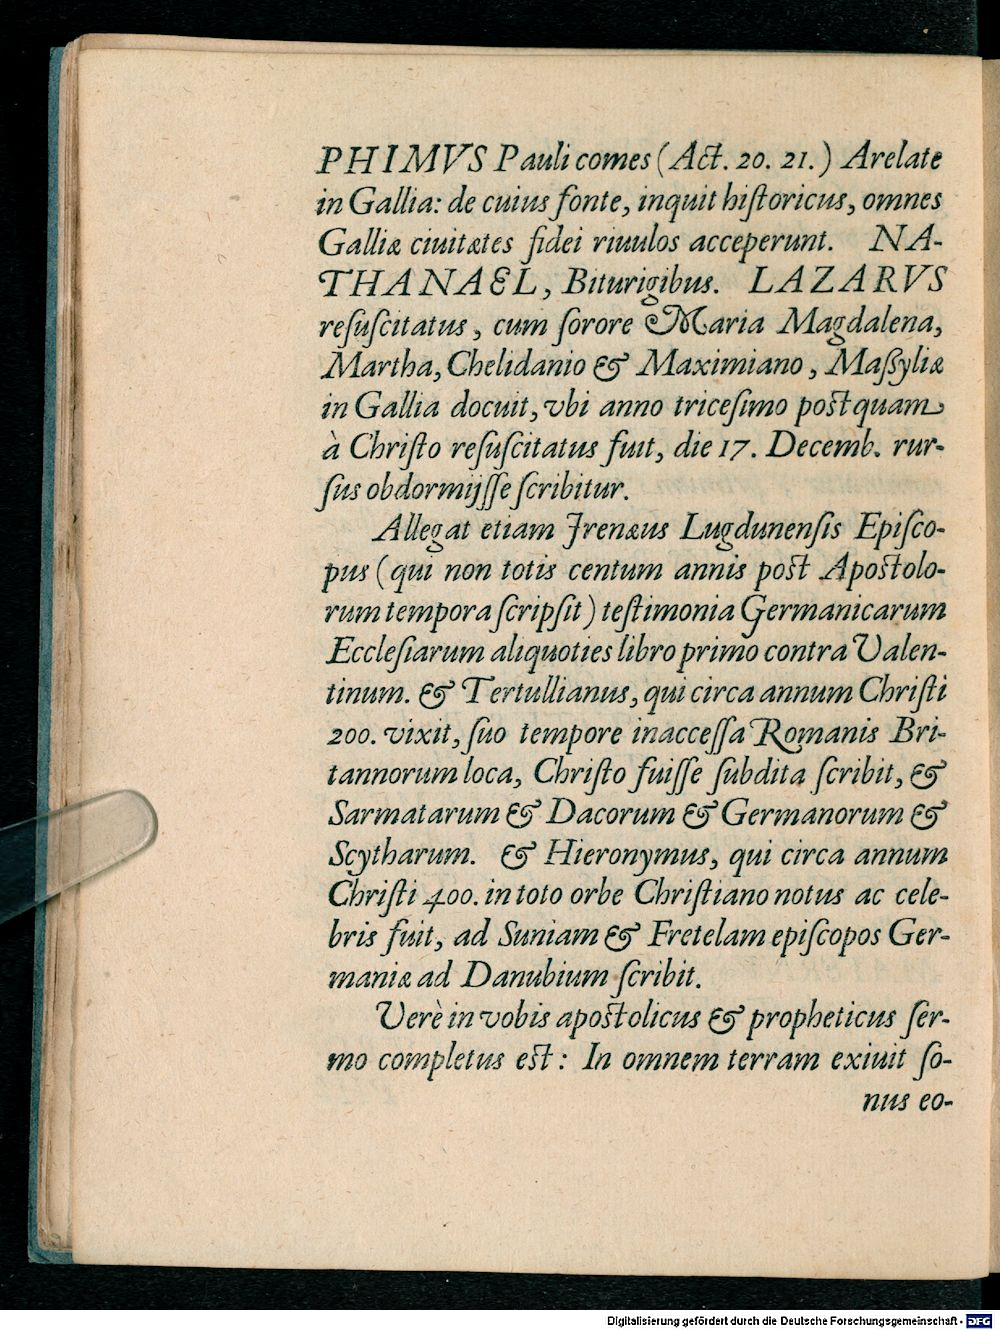 PHIMVS Pauli comes (Act. 20. 21.) Arelate
in Gallia: de cuius fonte, inquit hiſtoricus, omnes
Galliæ ciuitætes fidei riuulos acceperunt. NA-
THANAEL, Biturigibus. LAZARVS
reſuſcitatus, cum ſorore Maria Magdalena,
Martha, Chelidanio & Maximiano, Maßyliæ
in Gallia docuit, vbi anno triceſimo poſtquam
à Chriſto reſuſcitatus fuit, die 17. Decemb. rur-
ſus obdormijſſe ſcribitur.
Allegat etiam Irenæus Lugdunenſis Epiſco-
pus (qui non totis centum annis poſt Apoſtolo-
rum tempora ſcripſit) teſtimonia Germanicarum
Eccleſiarum aliquoties libro primo contra Valen-
tinum. & Tertullianus, qui circa annum Chriſti
200. vixit, ſuo tempore inacceſſa Romanis Bri-
tannorum loca, Chriſto fuiſſe ſubdita ſcribit, &
Sarmatarum & Dacorum & Germanorum &
Scytharum. & Hieronymus, qui circa annum
Chriſti 400. in toto orbe Chriſtiano notus ac cele-
bris fuit, ad Suniam & Fretelam epiſcopos Ger-
maniæ ad Danubium ſcribit.
Verè in vobis apoſtolicus & propheticus ſer-
mo completus eſt: In omnem terram exiuit ſo-
nus eo-
Digitalisierung gefördert durch die Deutsche Forschungsgemeinschaft - DFG